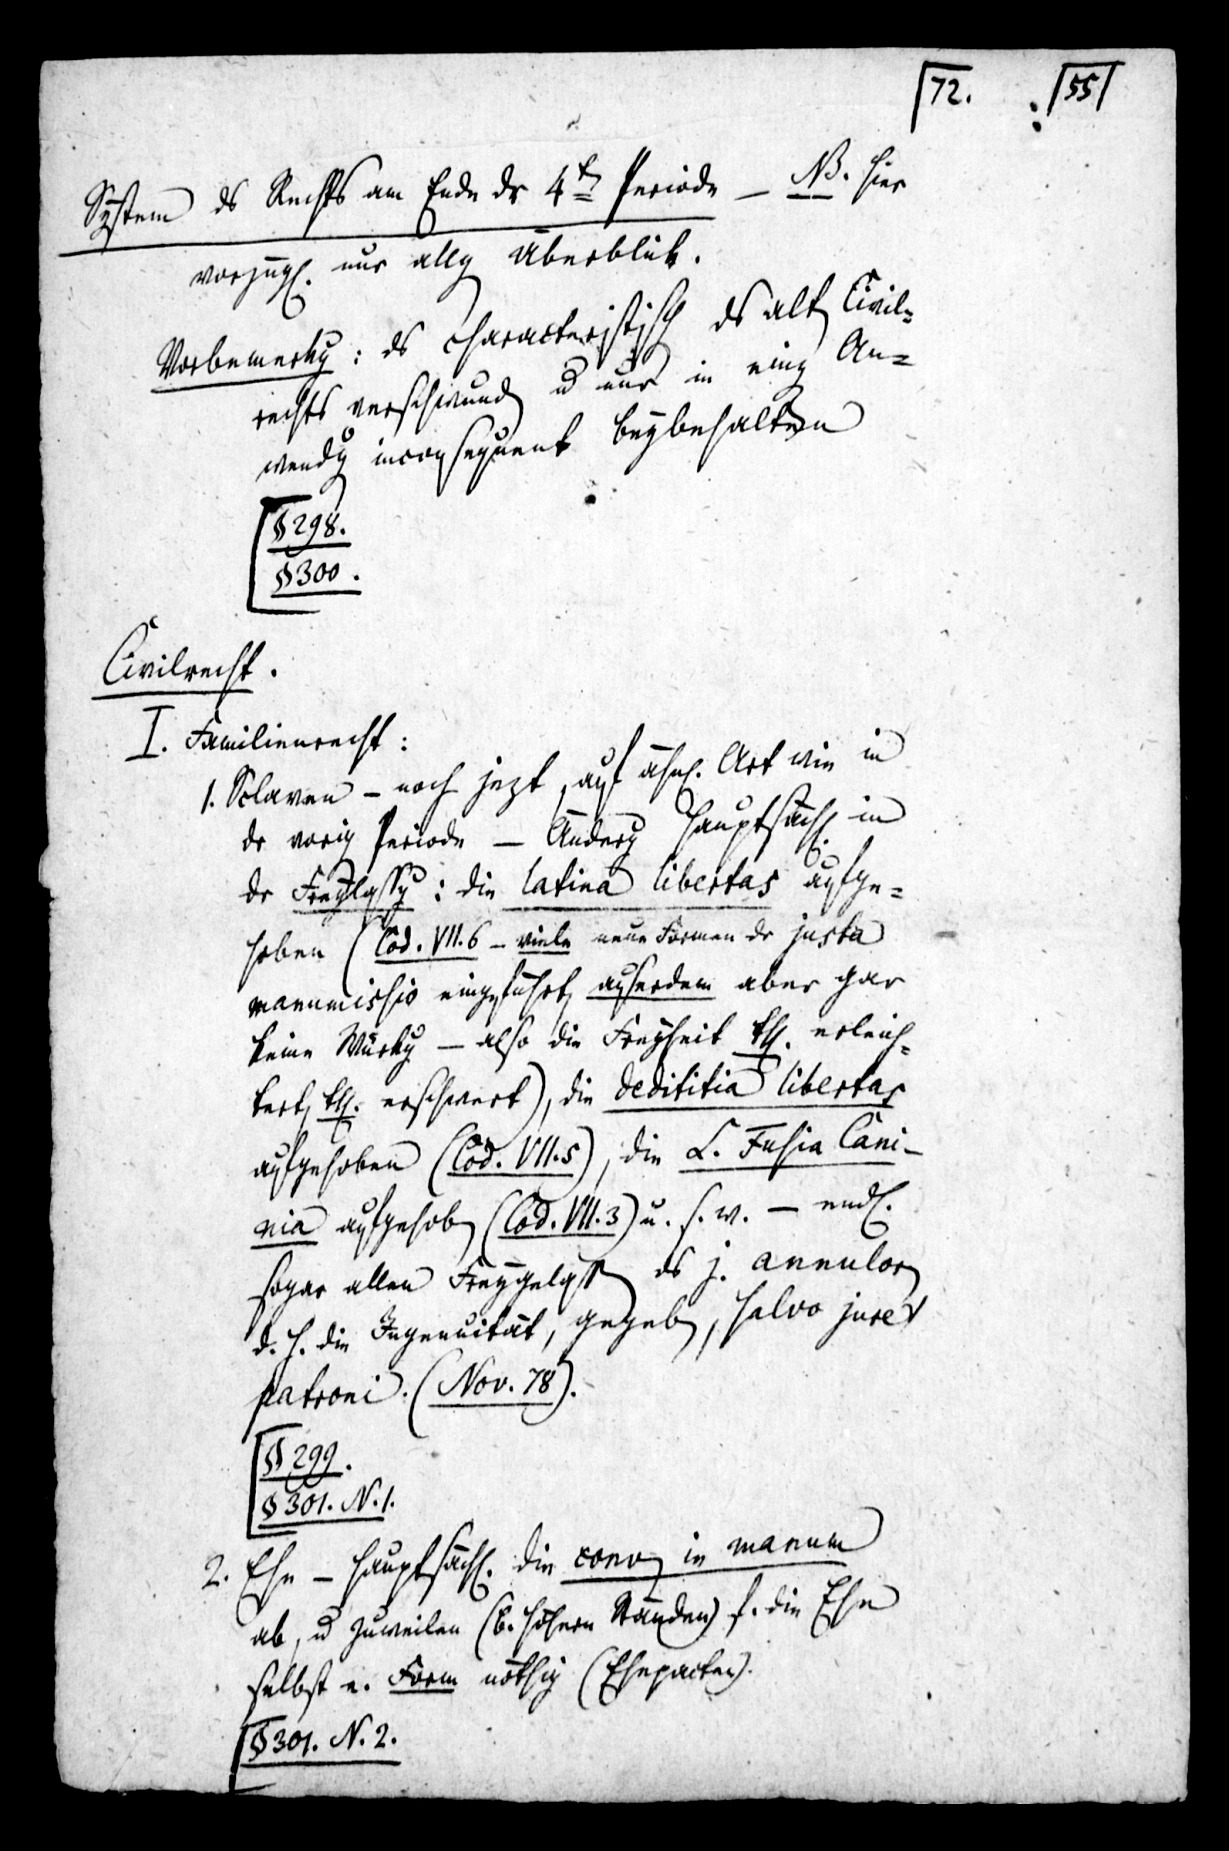 72. 55
System ds Rechts am Ende dr 4t Periode – NB. hier
vorzügl. nur allg Überblick.
Vorbemerkg: ds Characteristisch ds alt Civil-
rechts verschwund u nur in einig An-
wendg inconsequent beybehalten
§ 298.
§ 300.
Civilrecht.
I. Familienrecht:
1. Sclaven – noch jezt, auf ähnl. Art wie in
dr vorig Periode – Änderg hauptsächl. in
dr Freylassg: die latina libertas aufge-
hoben (Cod. VII.6 – viele neue Formen dr justa
manumissio eingeführt, ausserdem aber gar
keine Würkg – also die Freyheit thl. erleich-
tert, thl. erschwert), die dedititia libertas
aufgehoben (Cod. VII.5), die L. Fusia Cani-
nia aufgehob (Cod. VII.3) u. s. w. – endl.
sogar allen Freygelass ds j. annulor
d. h. die Ingenuität, gegeb, salvo jure
patroni. (Nov. 78).
§ 299.
§ 301. N. 1.
2. Ehe – hauptsächl. die conv in manum
ab, u zuweilen (b. höhern Ständen) f. die Ehe
selbst e. Form nöthig (Ehepacten).
§ 301. N. 2.